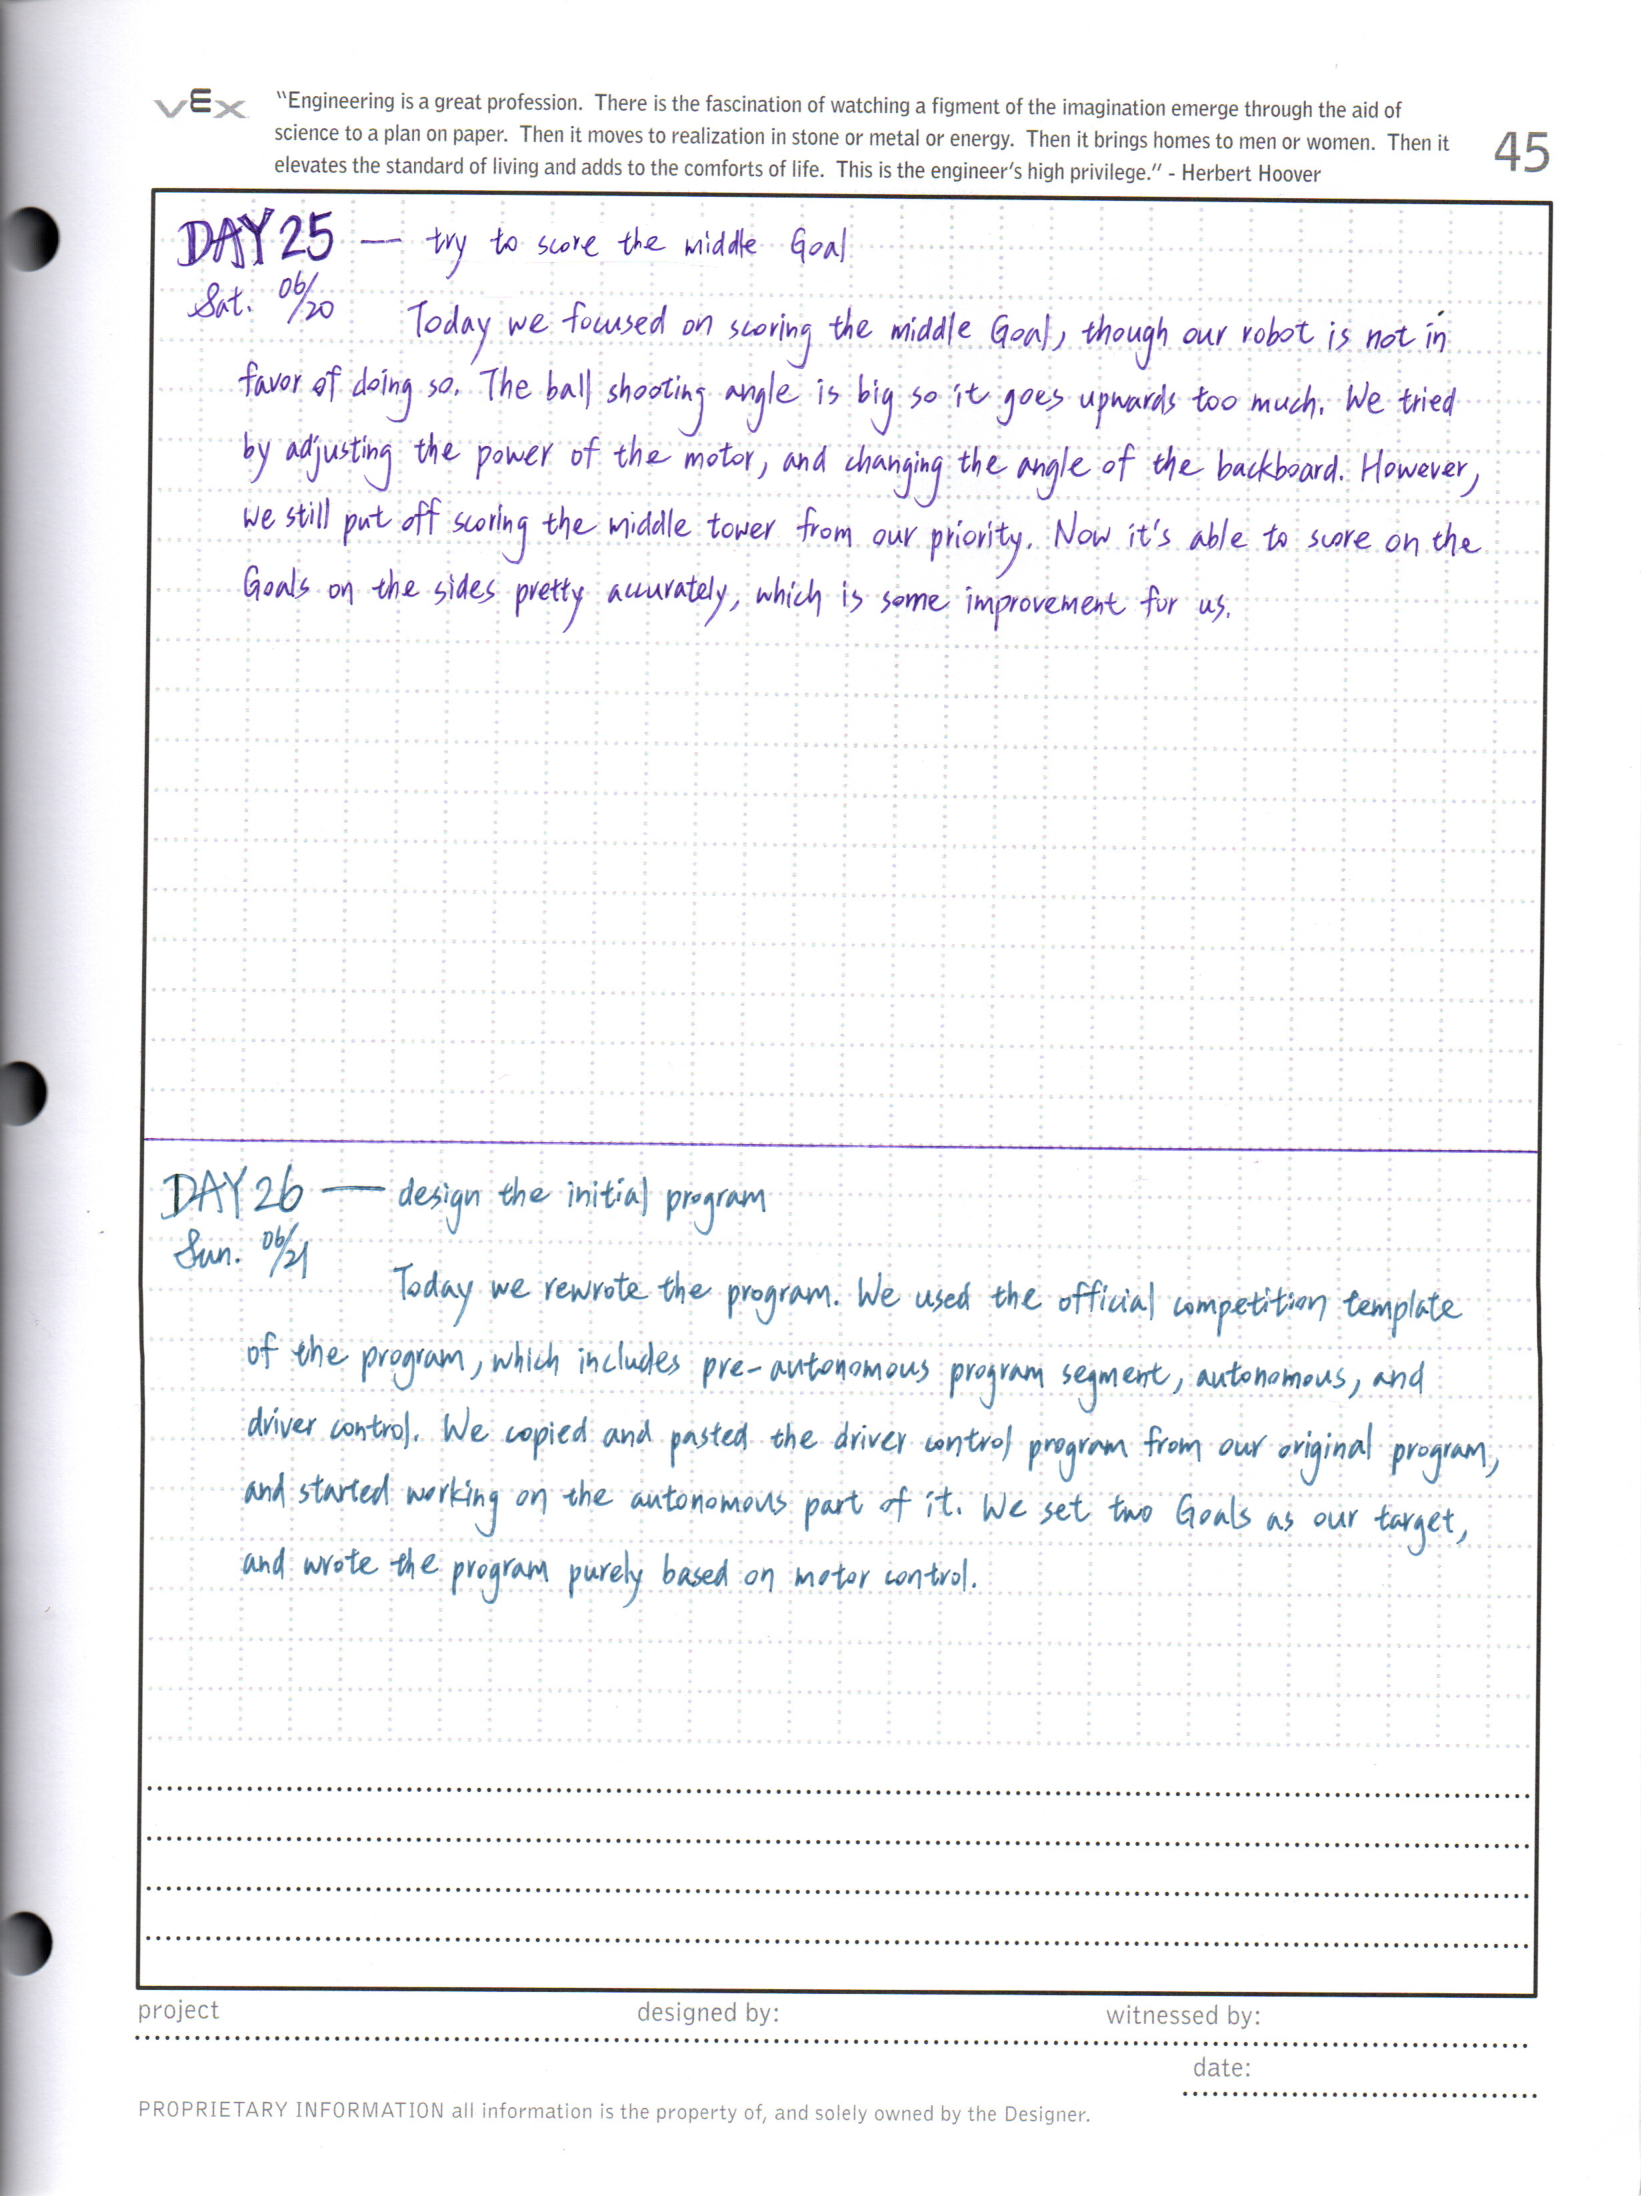 VEX
"Engineering is a great profession. There is the fascination of watching a figment of the imagination emerge through the aid of
science to a plan on paper. Then it moves to realization in stone or metal or energy. Then it brings homes to men or women. Then it
elevates the standard of living and adds to the comforts of life. This is the engineer's high privilege." - Herbert Hoover
45
DAY 25 — try to score the middle Goal
Sat. 06/20
Today we focused on scoring the middle Goal, though our robot is not in
favor of doing so. The ball shooting angle is big so it goes upwards too much. We tried
by adjusting the power of the motor, and changing the angle of the backboard. However,
we still put off scoring the middle tower from our priority. Now it's able to score on the
Goals on the sides pretty accurately, which is some improvement for us.
DAY 26 — design the initial program
Sun. 06/21
Today we rewrote the program. We used the official competition template
of the program, which includes pre-autonomous program segment, autonomous, and
driver control. We copied and pasted the driver control program from our original program,
and started working on the autonomous part of it. We set two Goals as our target,
and wrote the program purely based on motor control.
project
designed by:
witnessed by:
date:
PROPRIETARY INFORMATION all information is the property of, and solely owned by the Designer.